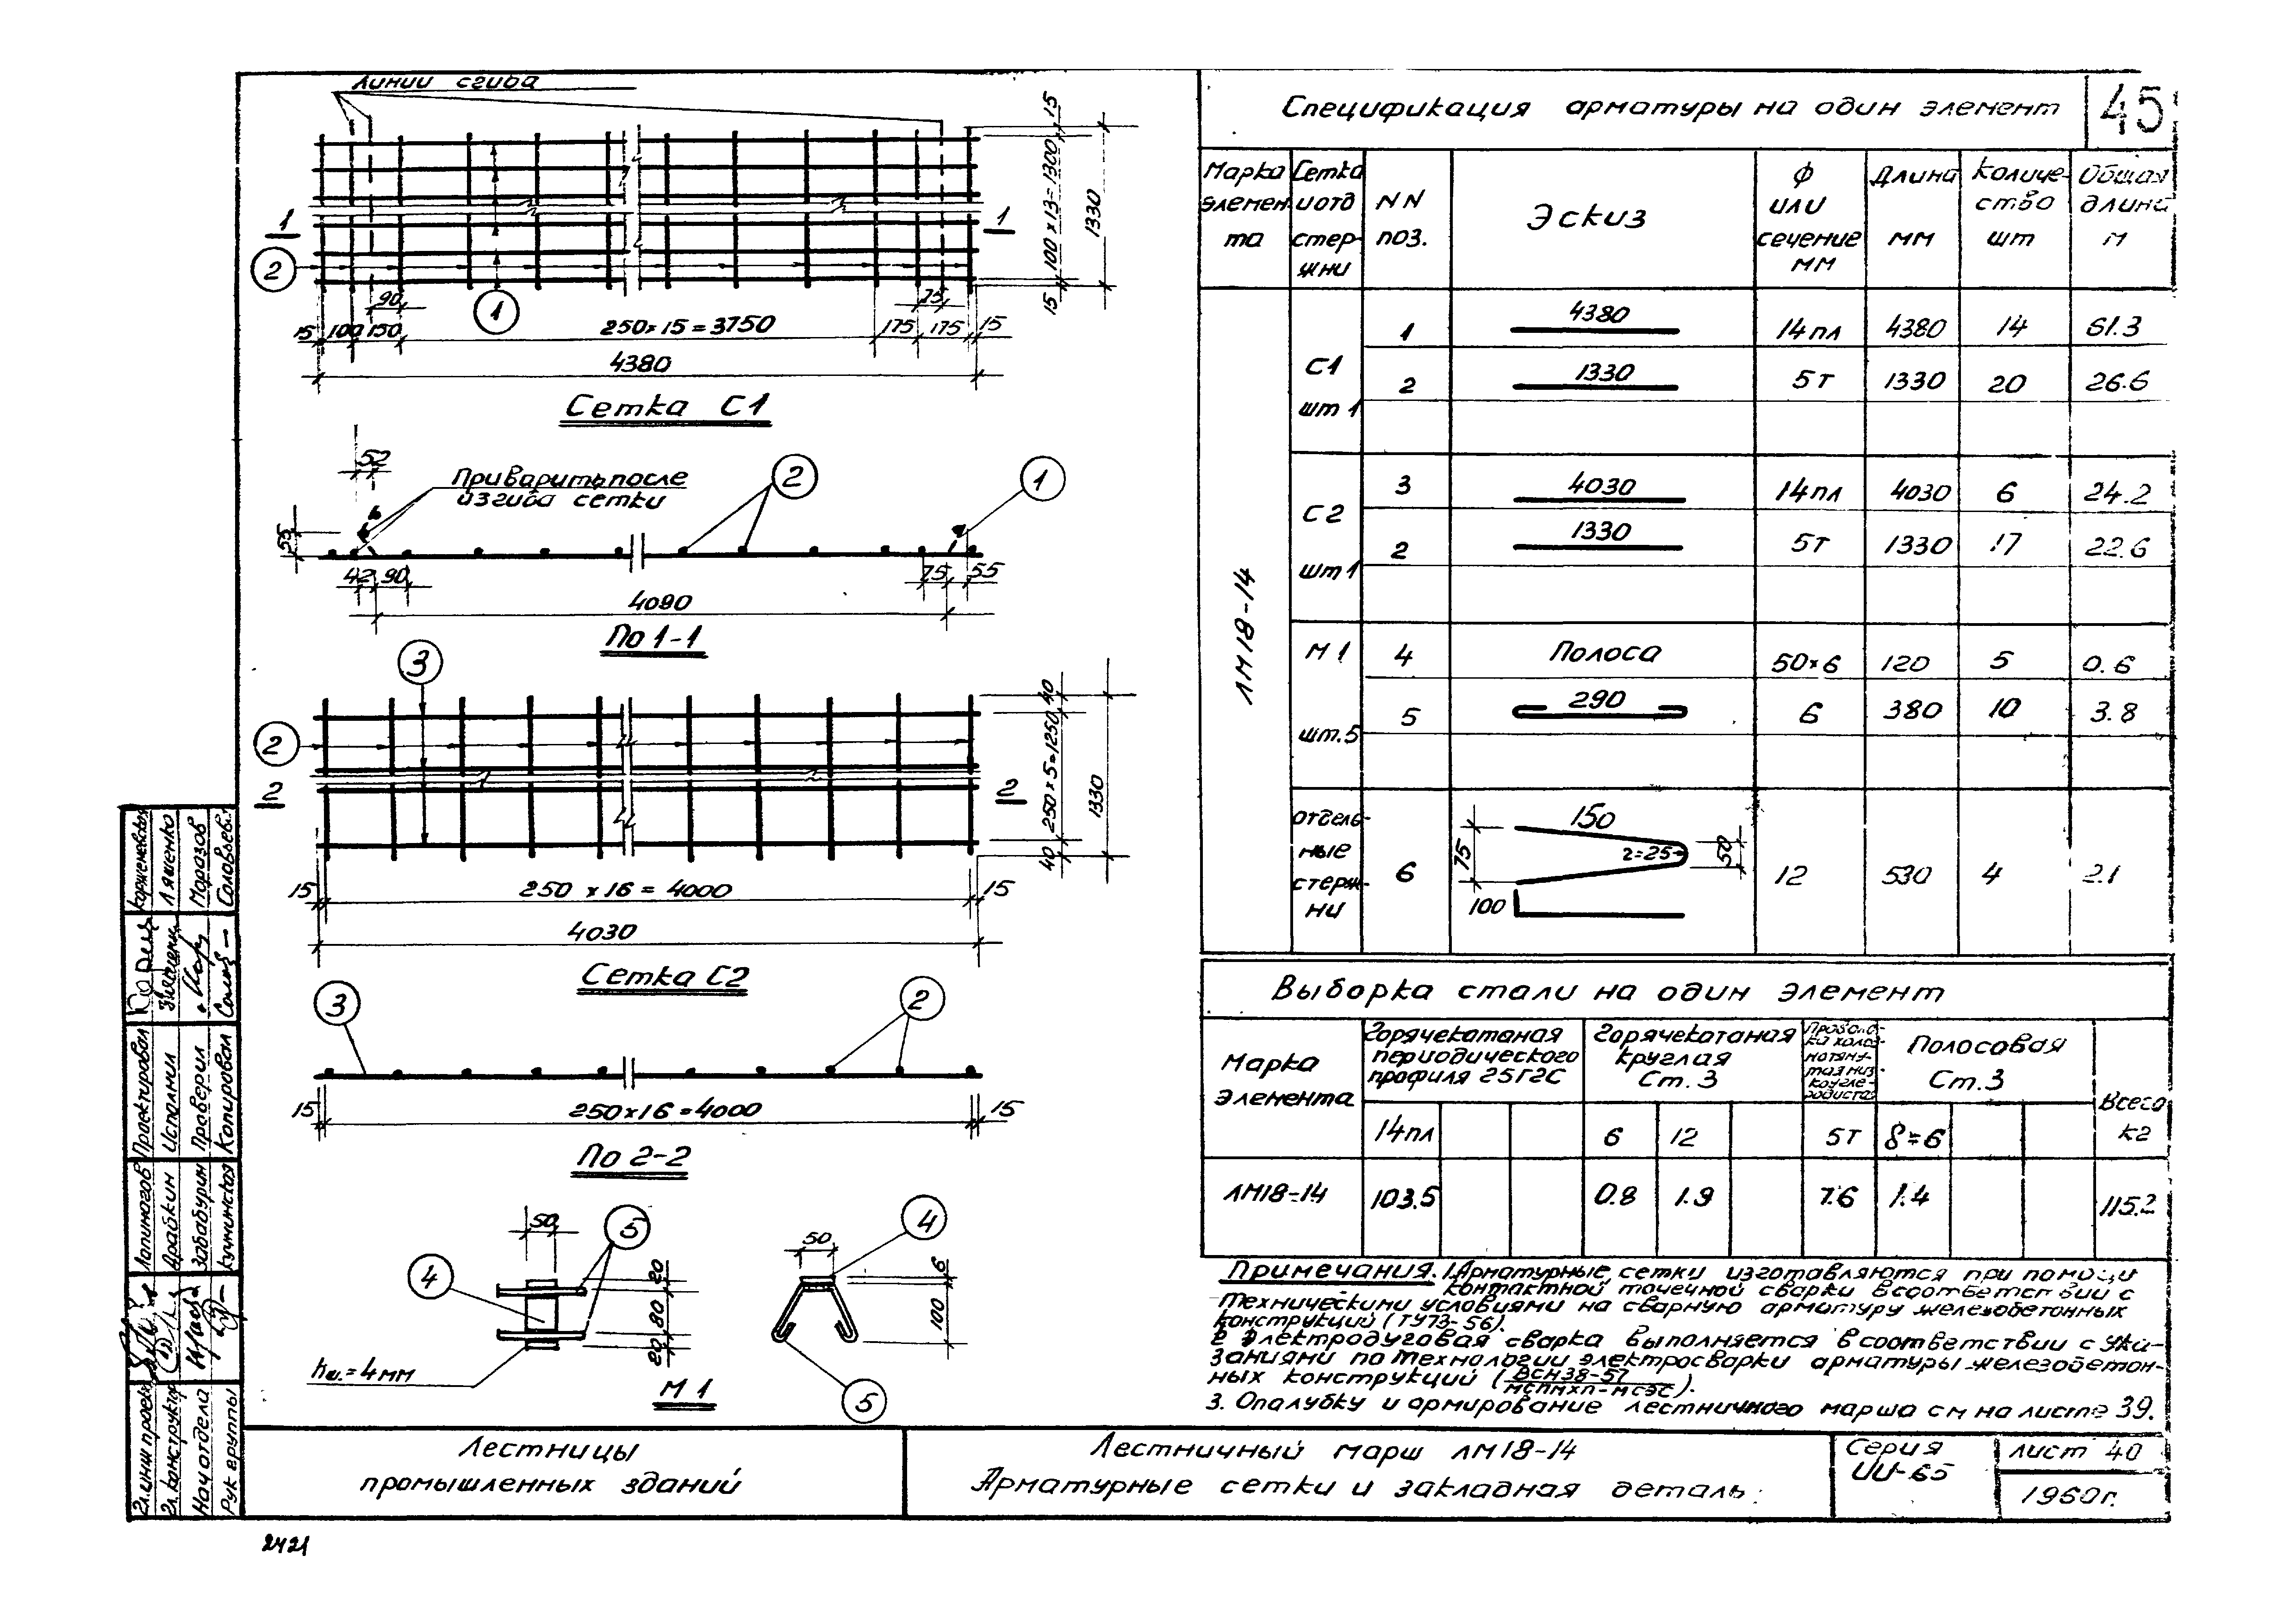 Линии сгиба
15
100 x 13 = 1300
1330
15
1
1
2
1
90
75
15 100 150 250 x 15 = 3750 175 175 15
4380
Сетка С1
52
Приварить после
изгиба сетки
2
1
55
42 90 75 55
4090
По 1-1
3
2
2
2
40
250 x 5 = 1250
1330
40
15 250 x 16 = 4000 15
4030
Сетка С2
3
2
15 250 x 16 = 4000 15
По 2-2
50
5
4
20
80
20
hш. = 4 мм
50
4
6
100
5
М 1
Спецификация арматуры на один элемент
45
Марка элемента
Сетка и отд стержни
NN поз.
Эскиз
Ф или сечение мм
Длина мм
Количество шт
Общая длина м
ЛМ 18-14
С1 шт 1
1 4380 14пл 4380 14 61.3
2 1330 5т 1330 20 26.6
С2 шт 1
3 4030 14пл 4030 6 24.2
2 1330 5т 1330 17 22.6
М 1 шт. 5
4 Полоса 50x6 120 5 0.6
5 290 6 380 10 3.8
отдельные стержни
6 150 75 r=25 50 100 12 530 4 2.1
Выборка стали на один элемент
Марка элемента
Горячекатаная периодического профиля 25Г2С
Горячекатаная круглая Ст. 3
Полосовая Ст. 3
Всего кг
14пл 6 12 5т δ=6
ЛМ18-14 103.5 0.8 1.9 7.6 1.4 115.2
Примечания. 1. Арматурные сетки изготавляются при помощи
контактной точечной сварки в соответствии с
техническими условиями на сварную арматуру железобетонных
конструкций (ТУ73-56).
2 Электродуговая сварка выполняется в соответствии с Ука-
заниями по технологии электросварки арматуры железобетон-
ных конструкций (ВСН38-57
МСПМХП-МСЭС).
3. Опалубку и армирование лестничного марша см на листе 39.
Лестницы
промышленных зданий
Лестничный марш ЛМ18-14
Арматурные сетки и закладная деталь
Серия
ИИ-65
лист 40
1960г.
Гл. инж проекта
Гл. конструктор
Нач отдела
Рук группы
Драбкин
Забабурин
Кучминская
Проектировал
Исполнил
Проверил
Копировал
Ляшенко
2421